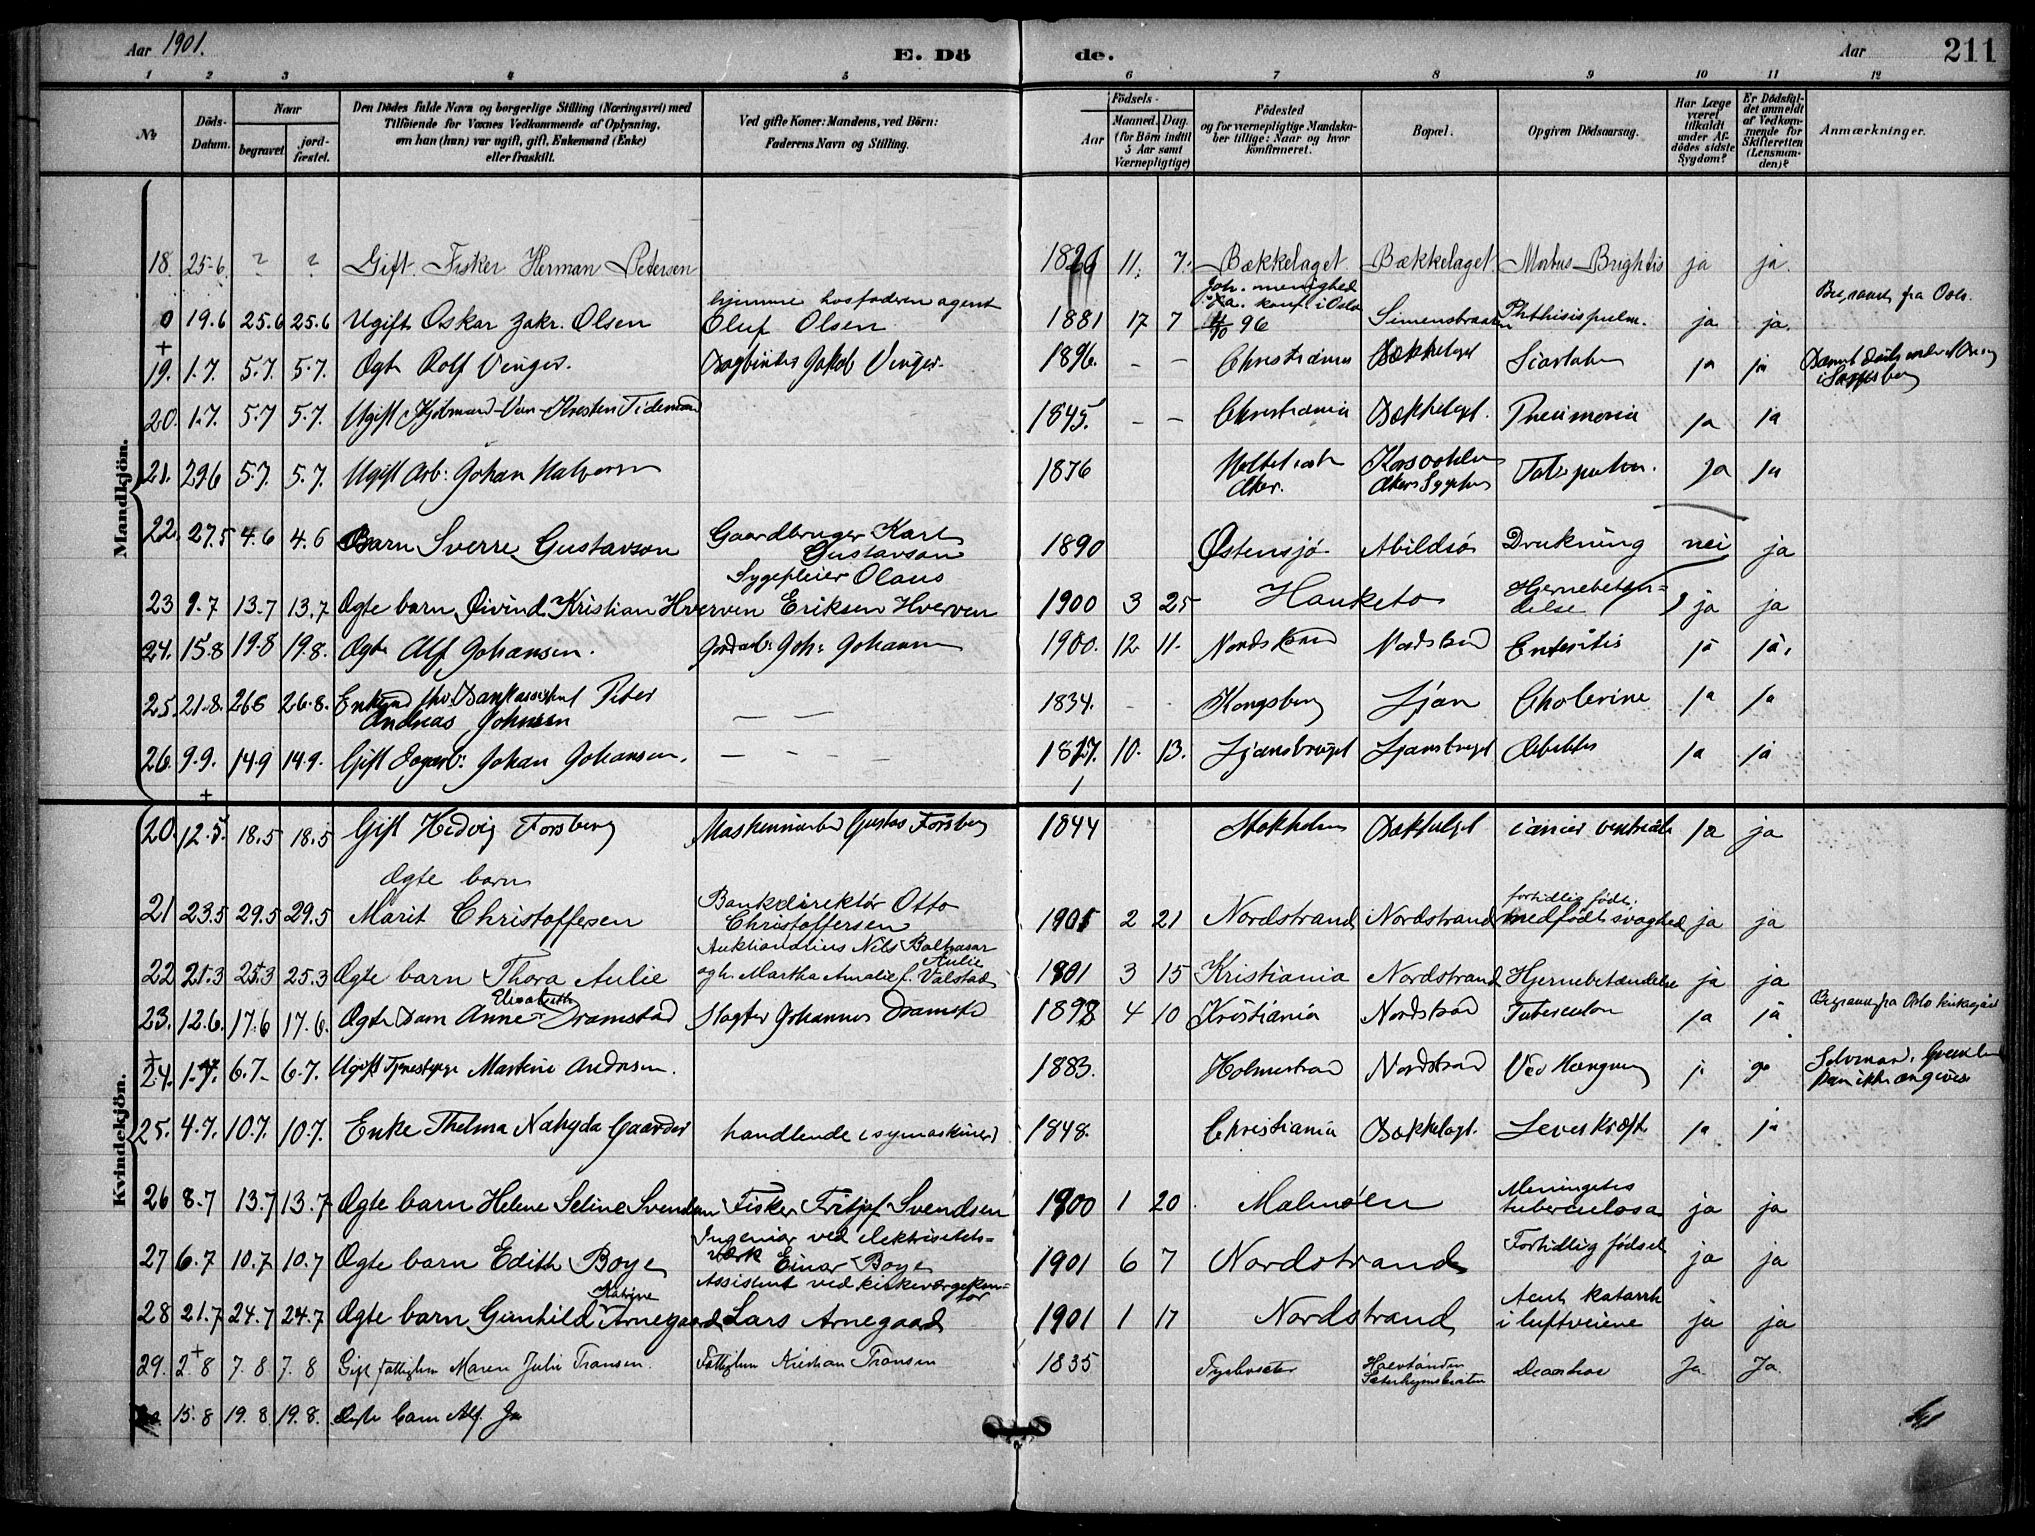 Aar 1901. E. Dö de. Aar 211
1 2 3 4 5 6 7 8 9 10 11 12
No
Döds-Datum.
Naar
begravet
jord-fæstet.
Den Dödes fulde Navn og borgerlige Stilling (Næringsvei) med
Tilföiende for Voxnes Vedkommende af Oplysning,
om han (hun) var ugift, gift, Enkemand (Enke)
eller fraskilt.
Ved gifte Koner: Mandens, ved Börn:
Faderens Navn og Stilling.
Födsels-
Aar
Maaned. Dag.
(for Börn indtil
5 Aar samt
Værnepligtige)
Födested
og for værnepligtige Mandska-
ber tillige: Naar og hvor
konfirmeret.
Bopæl.
Opgiven Dödsaarsag.
Har Læge
været
tilkaldt
under Af-
dödes sidste
Sygdom?
Er Dödsfal-
det anmeldt
af Vedkom-
mende for
Skifteretten
(Lensman-
den)?
Anmærkninger.
Mandkjön.
18. 25-6. ? ? Gift. Fisker Herman Pedersen 11. 7. Bækkelaget Bækkelaget Morbus Brightis ja ja.
0 19.6 25.6 25.6 Ugift Oskar Zakr. Olsen hjemme hos faderen agent
Oluf Olsen 1881 17 7 Joh. menighed
konf. i Oslo
96 Phthisis pulm. ja ja. fra Oslo.
+
19. 1.7. 5.7. 5.7. Ægte Rolf Venger. Bogbinder Jakob Venger. 1896. - - Christiania Bækkelaget ja ja
20. 1.7. 5.7 5.7. Ugift 1845. - - Christiania Bækkelaget. Pneumonia ja ja
21. 29.6 5.7. 5.7. Ugift Arb: Johan Halvorsen 1876 Aker. Akers Sygehus ja ja
22. 27.5 4.6 4.6 Barn Sverre Gustavson Gaardbruger Karl
Gustavson 1890 Østensjø Abildsø Drukning nei ja
23 9.7 13.7 13.7 Ægte barn Øivind Kristian Hverven Sygepleier Olaus
Eriksen Hverven 1900 3 25 Hauketo Hjernebetæn-
delse ja ja
24. 15.8 19.8 19.8. Ægte Alf Johansen. Joh: Johansen 1900. 12 11. Nordstrand Nordstrand Enteritis ja ja.
25. 21.8. 26.8 26.8. Enkemand fhv. Bankassistent Peter
Andreas Johnsen — — 1834. Kongsberg Ljan Cholerine ja ja
26. 9.9. 14.9 14.9. Gift Johan Johansen. — - — 10. 13. Ljansbruget Ljansbruget ja ja
+
Kvindekjön.
20. 12.5. 18.5 18.5 Gift Hedvig Forsberg Maskinarbeider Gustav Forsberg 1844 Stokholm Bækkelaget cancer ventriculi ja ja
21 23.5 29.5 29.5 Ægte barn
Marit Christoffersen Bankdirektør Otto
Christoffersen 1901 2 21 Nordstrand Nordstrand fortidlig født:
medfødt svaghed ja ja
22 21.3 25.3 25.3 Ægte barn Thora Aulie Auktionarius Nils Balthasar
Aulie
og h. Martha Amalie f. Valstad 1901 3 15 Kristiania Nordstrand Hjernebetændelse ja ja
23. 12.6. 17.6 17.6. Ægte Barn Anne Elisabeth Dramstad Slagter Johannes Dramstad 1898 4 10 Kristiania Nordstrand ja ja Begravet fra Oslo kirkegård
+
24. 1.7. 6.7. 6.7. Ugift Tjenestepige Martine Andresen. 1883. Holmestrand Nordstrand Ved Hængning Selvmord.
kan ikke angives
25. 4.7. 10.7. 10.7. Enke Thelma Nahyda Gaarder handlende (symaskiner) 1848. Christiania Bækkelaget. Leverkræft ja ja
26 8.7 13.7 13.7 Ægte barn Helene Seline Svendsen Fisker Fritjof Svendsen 1900 1 20 Malmøen Meningitis
tuberculosa ja ja
27 6.7 10.7 10.7 Ægte barn Edith Boye Ingeniør ved elektrisitets-
værk Einar Boye 1901 6 7 Nordstrand Fortidlig fødsel ja ja
28 21.7 24.7 24.7 Ægte barn Gunhild Katrine Arnegaard Assistent ved kirkeværgekon-
tor
Lars Arnegaard 1901 1 17 Nordstrand Acut katarrh
i luftveiene ja ja
+
29. 2 8 7. 8 7. 8 Gift fattiglem Maren Julie Fransen. Fattiglem Kristian Fransen 1835 Ja Ja.
15. 8 19. 8. 19. 8. Ægte barn Alf. Jo